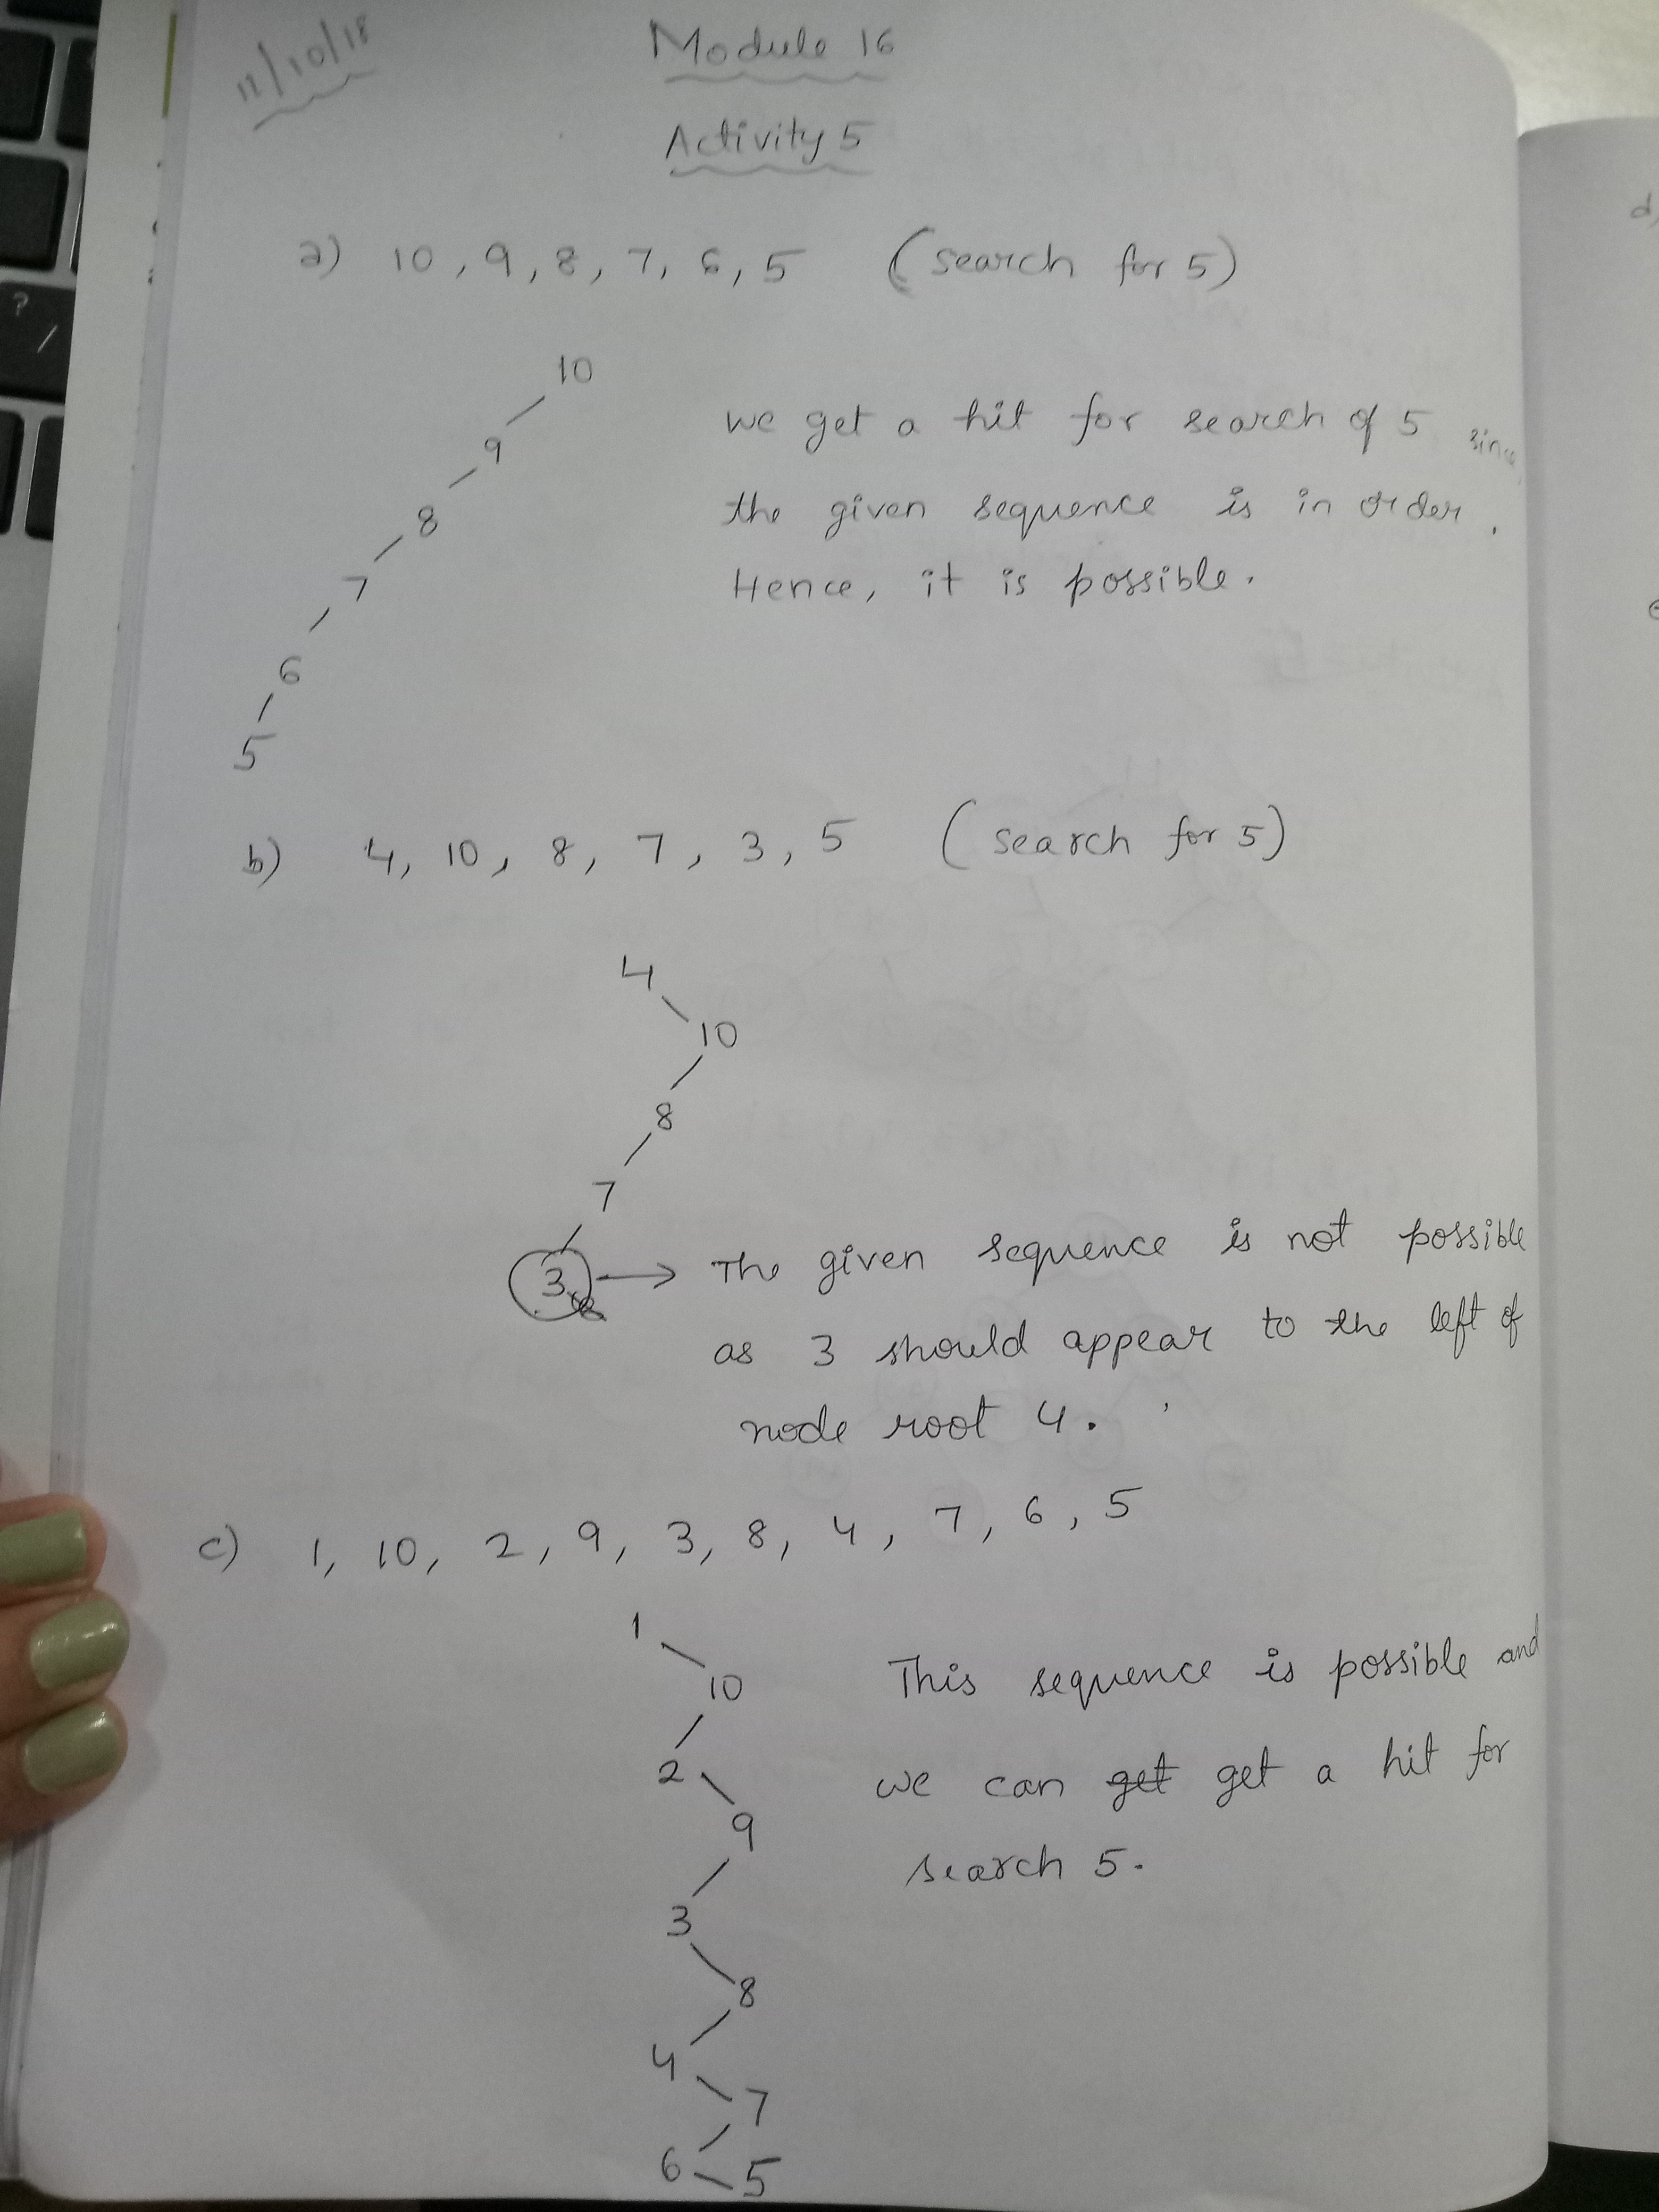 11/10/18
Module 16
Activity 5
a) 10, 9, 8, 7, 6, 5 (search for 5)
10
9
8
7
6
5
we get a hit for search of 5 since
the given sequence is in order.
Hence, it is possible.
b) 4, 10, 8, 7, 3, 5 (search for 5)
4
10
8
7
3 → The given sequence is not possible
as 3 should appear to the left of
node root 4.
c) 1, 10, 2, 9, 3, 8, 4, 7, 6, 5
1
10
2
9
3
8
4
7
6 5
This sequence is possible and
we can get get a hit for
search 5.
d)